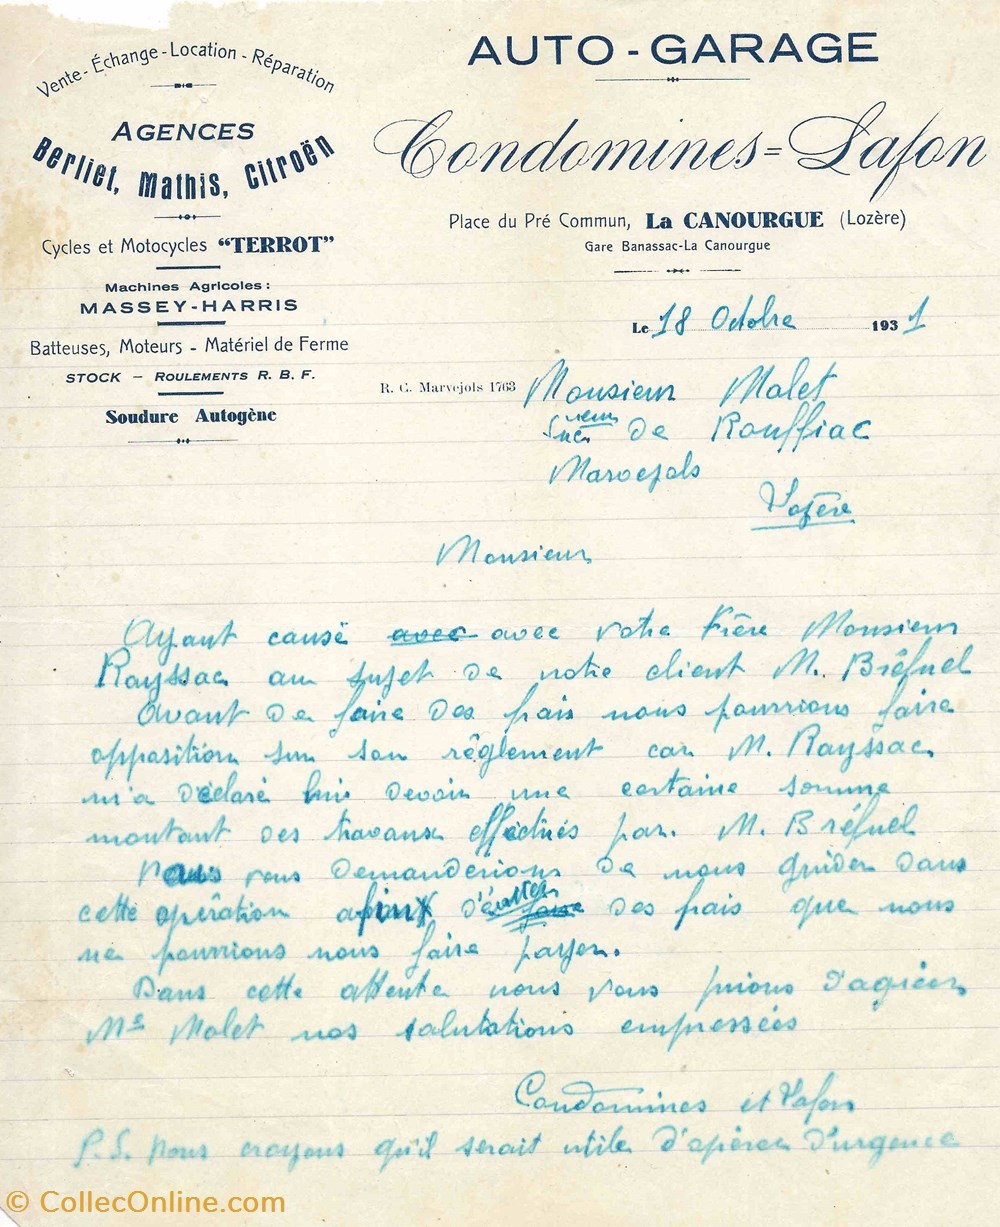 Vente - Échange - Location - Réparation
AGENCES
Berliet, Mathis, Citroën
Cycles et Motocycles "TERROT"
Machines Agricoles :
MASSEY-HARRIS
Batteuses, Moteurs - Matériel de Ferme
STOCK - ROULEMENTS R. B. F.
Soudure Autogène
AUTO - GARAGE
Condomines = Lafon
Place du Pré Commun, La CANOURGUE (Lozère)
Gare Banassac-La Canourgue
R. C. Marvejols 1763
Le 18 Octobre 1931
Monsieur Malet
Sucr de Rouffiac
Marvejols
Lozère
Monsieur
Ayant causé avec avec votre Frère Monsieur
Rayssac au sujet de notre client M. Bréfuel
Avant de faire des frais nous pourrions faire
opposition sur son règlement car M. Rayssac
m'a déclaré lui devoir une certaine somme
montant des travaux effectués par M. Bréfuel
vous demanderions de nous guider dans
cette opération afin d'éviter faire des frais que nous
ne pourrions nous faire payer.
Dans cette attente nous vous prions d'agréer
Mr Malet nos salutations empressées
Condomines et Lafon
P.S. Nous croyons qu'il serait utile d'opérer d'urgence
© CollecOnline.com